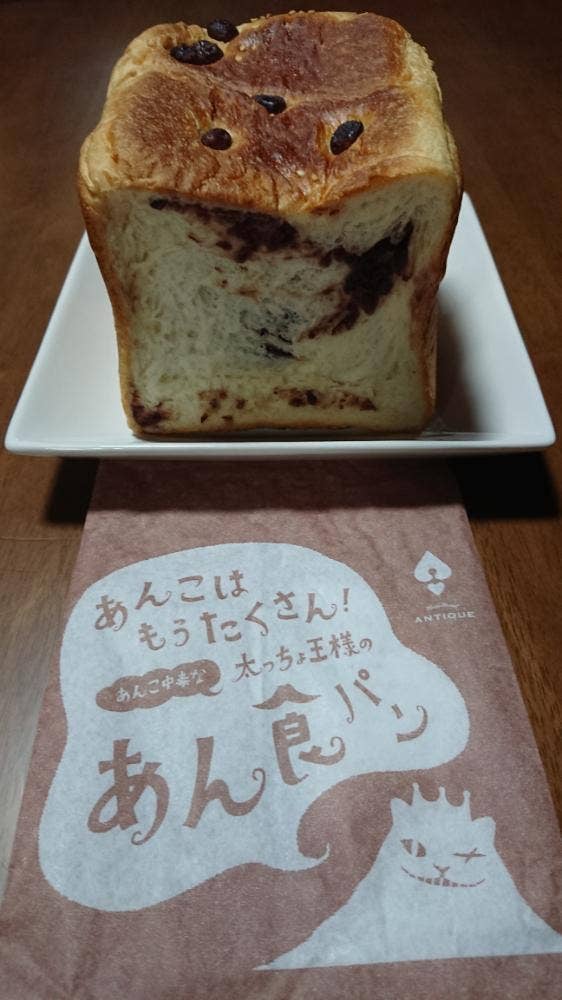 あんこは
もうたくさん!
あんこ中毒な
太っちょ王様の
あん食パン
ANTIQUE